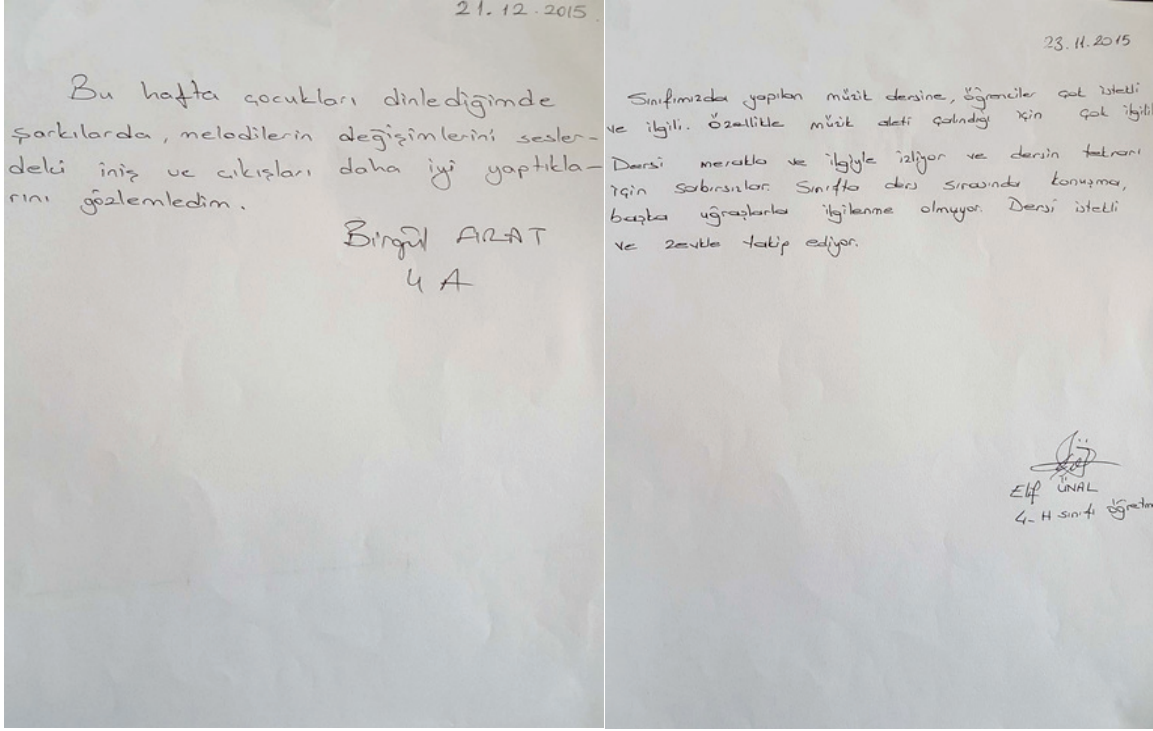 21.12.2015
Bu hafta çocukları dinlediğimde
şarkılarda, melodilerin değişimlerini sesler-
deki iniş ve çıkışları daha iyi yaptıkla-
rını gözlemledim.
Birgül ARAT
4 A
23.11.2015
Sınıfımızda yapılan müzik dersine, öğrenciler çok istekli
ve ilgili. Özellikle müzik aleti çalındığı için çok ilgili
Dersi merakla ve ilgiyle izliyor ve dersin tekrarı
için sabırsızlar. Sınıfta ders sırasında konuşma,
başka uğraşlarla ilgilenme olmuyor. Dersi istekli
ve zevkle takip ediyor.
Elif ÜNAL
4-H sınıfı öğretm